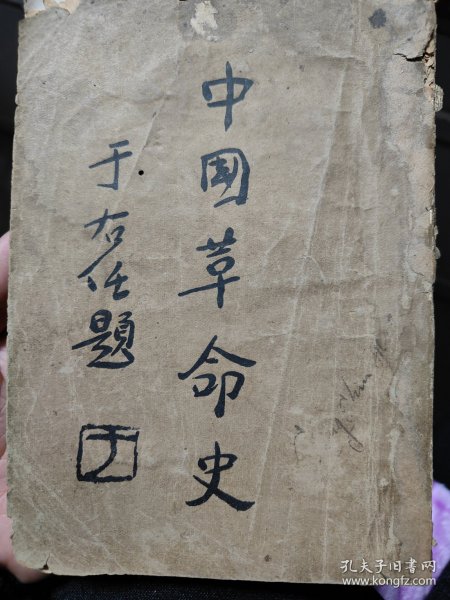 中国革命史
于右任题
孔夫子旧书网
www.kongfz.com